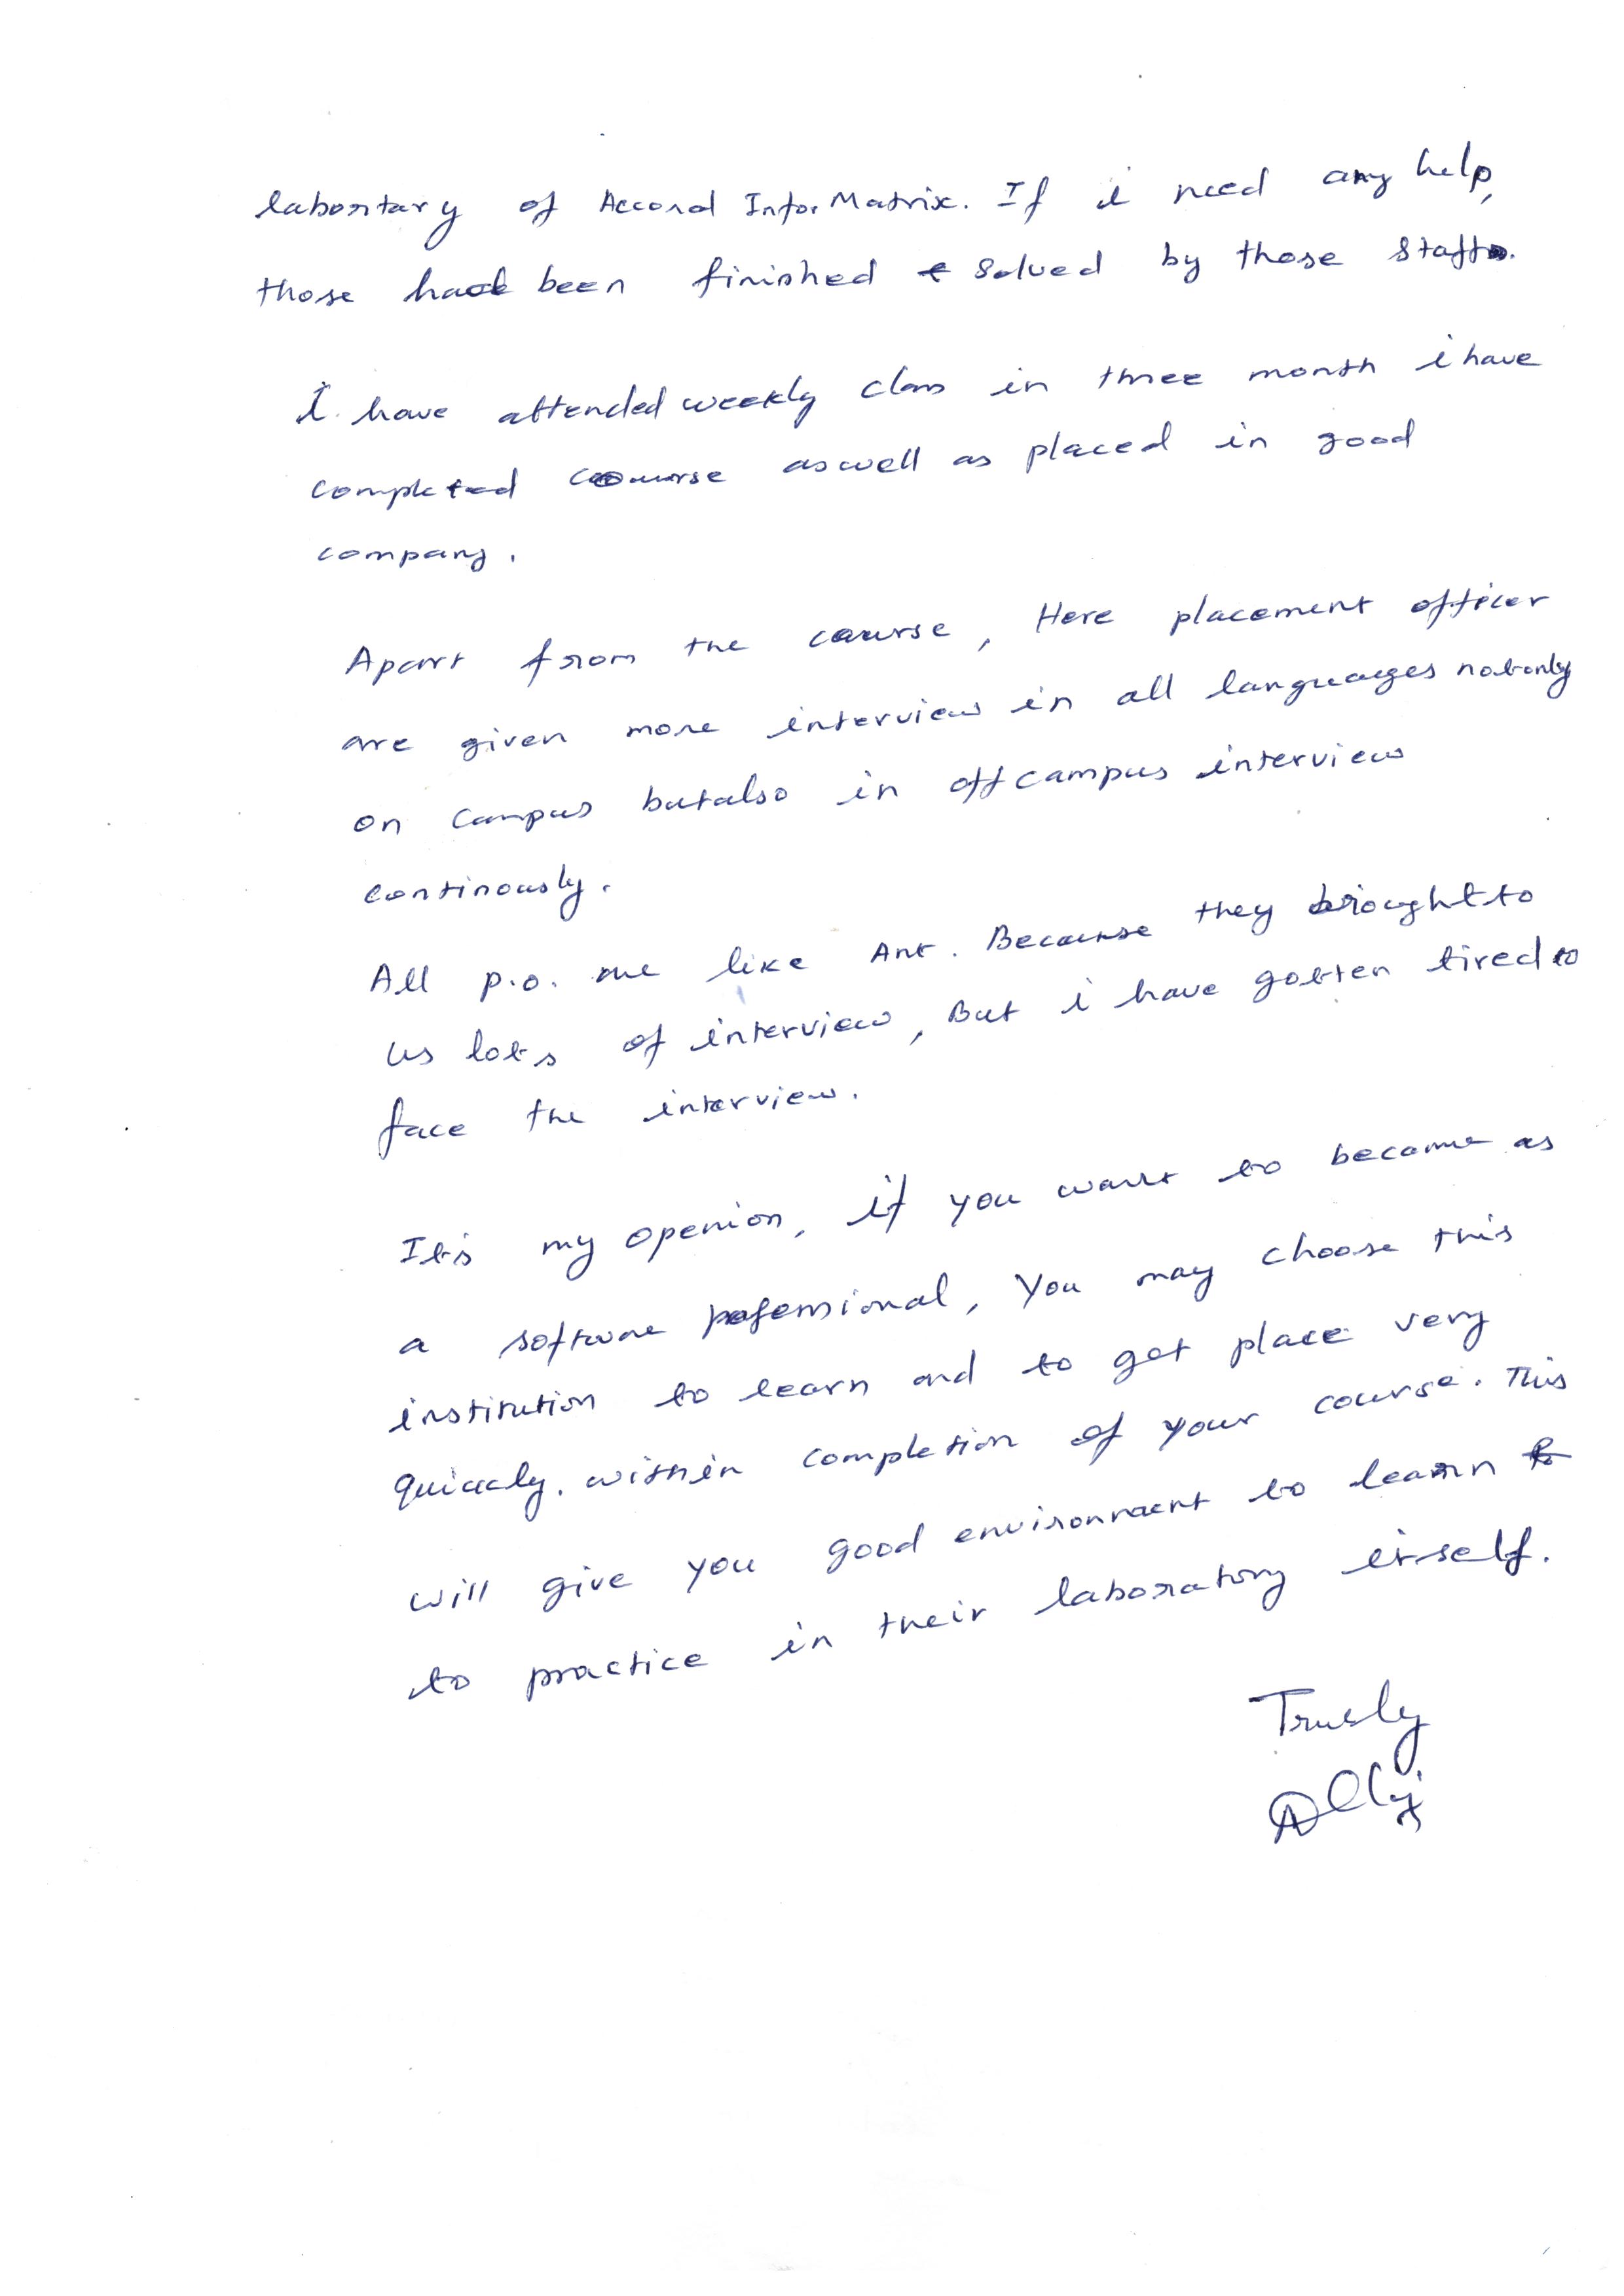 labortary of Accord Info. Matrix. If i need any help,
those had been finished & solved by those staffs.
I have attended weekly class in three month i have
completed course aswell as placed in good
company.
Apart from the course, Here placement officer
are given more interview in all languages not only
on campus but also in off campus interview
continously.
All p.o. are like Ant. Because they brought to
us lots of interview, But i have gotten tired to
face the interview.
It's my openion, if you want to become as
a software pofessional, You may choose this
institution to learn and to get place very
quickly. within completion of your course. This
will give you good environment to learn &
to practice in their laboratory itself.
Truely